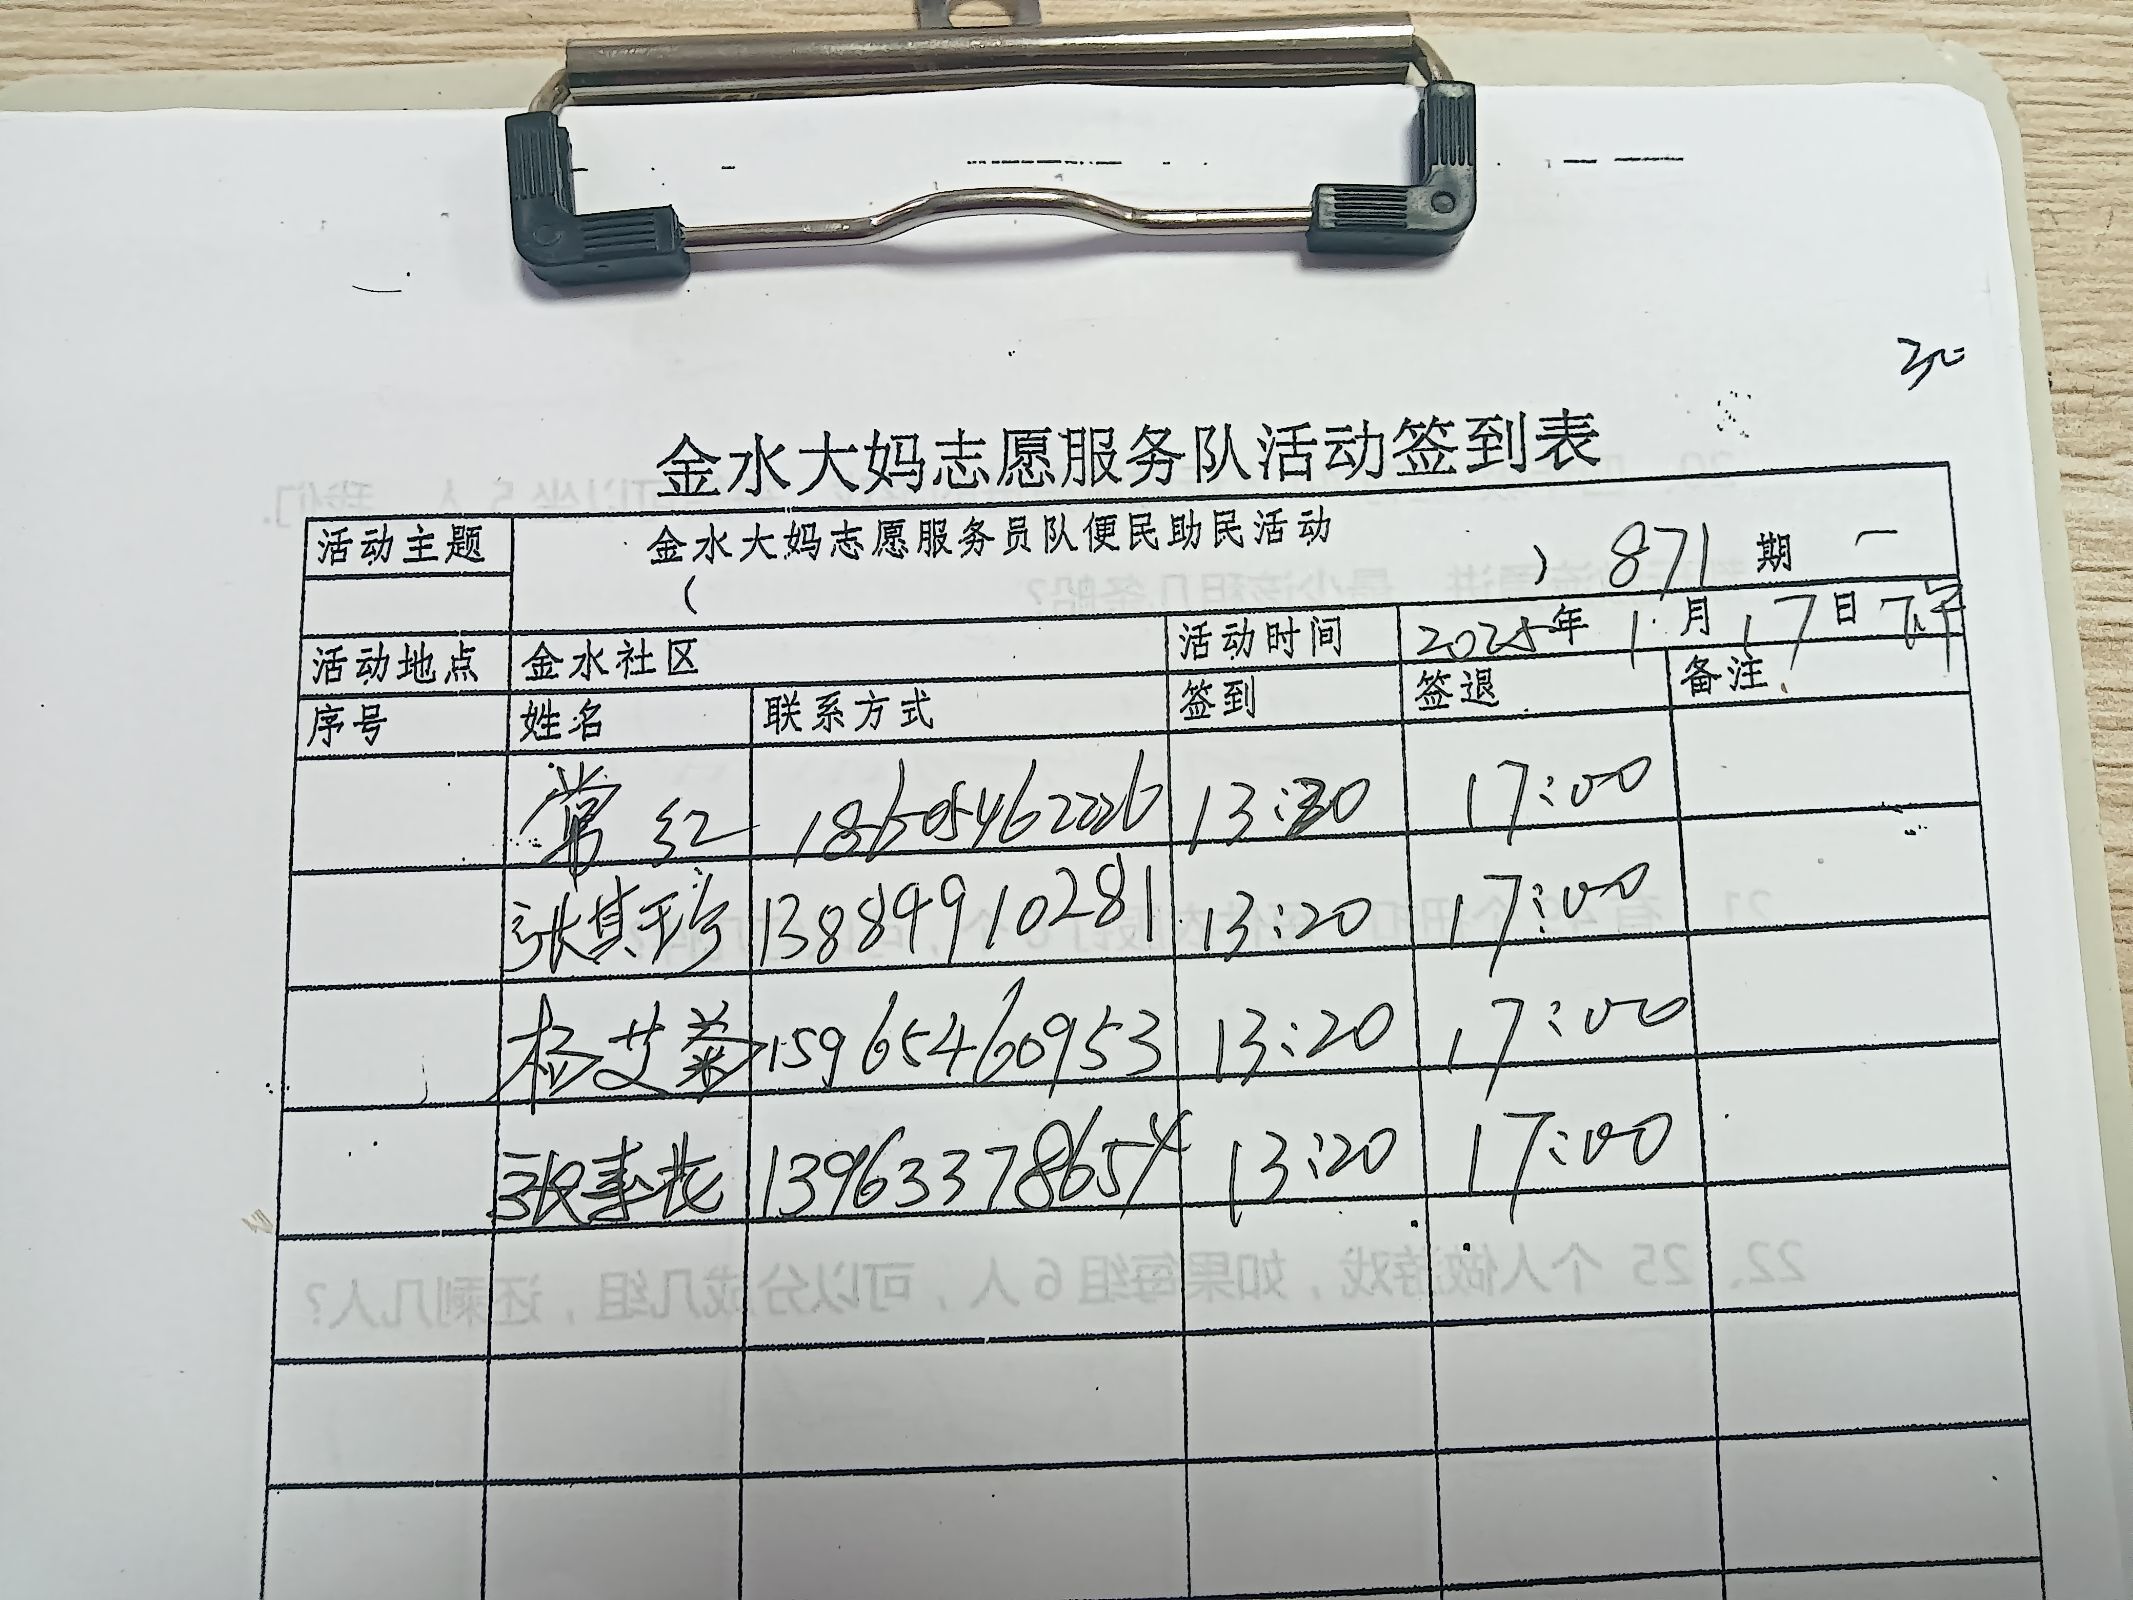 金水大妈志愿服务队活动签到表
活动主题 金水大妈志愿服务员队便民助民活动
( ) 871 期 一
活动地点 金水社区 活动时间 2025年 1月 17日 下午
序号 姓名 联系方式 签到 签退 备注
常红 18605462226 13:20 17:00
张其珍 13884910281 13:20 17:00
杨艾菊 15965460953 13:20 17:00
张 13963378654 13:20 17:00
22、25 个人做游戏，如果每组 6 人，可以分成几组，还剩几人？